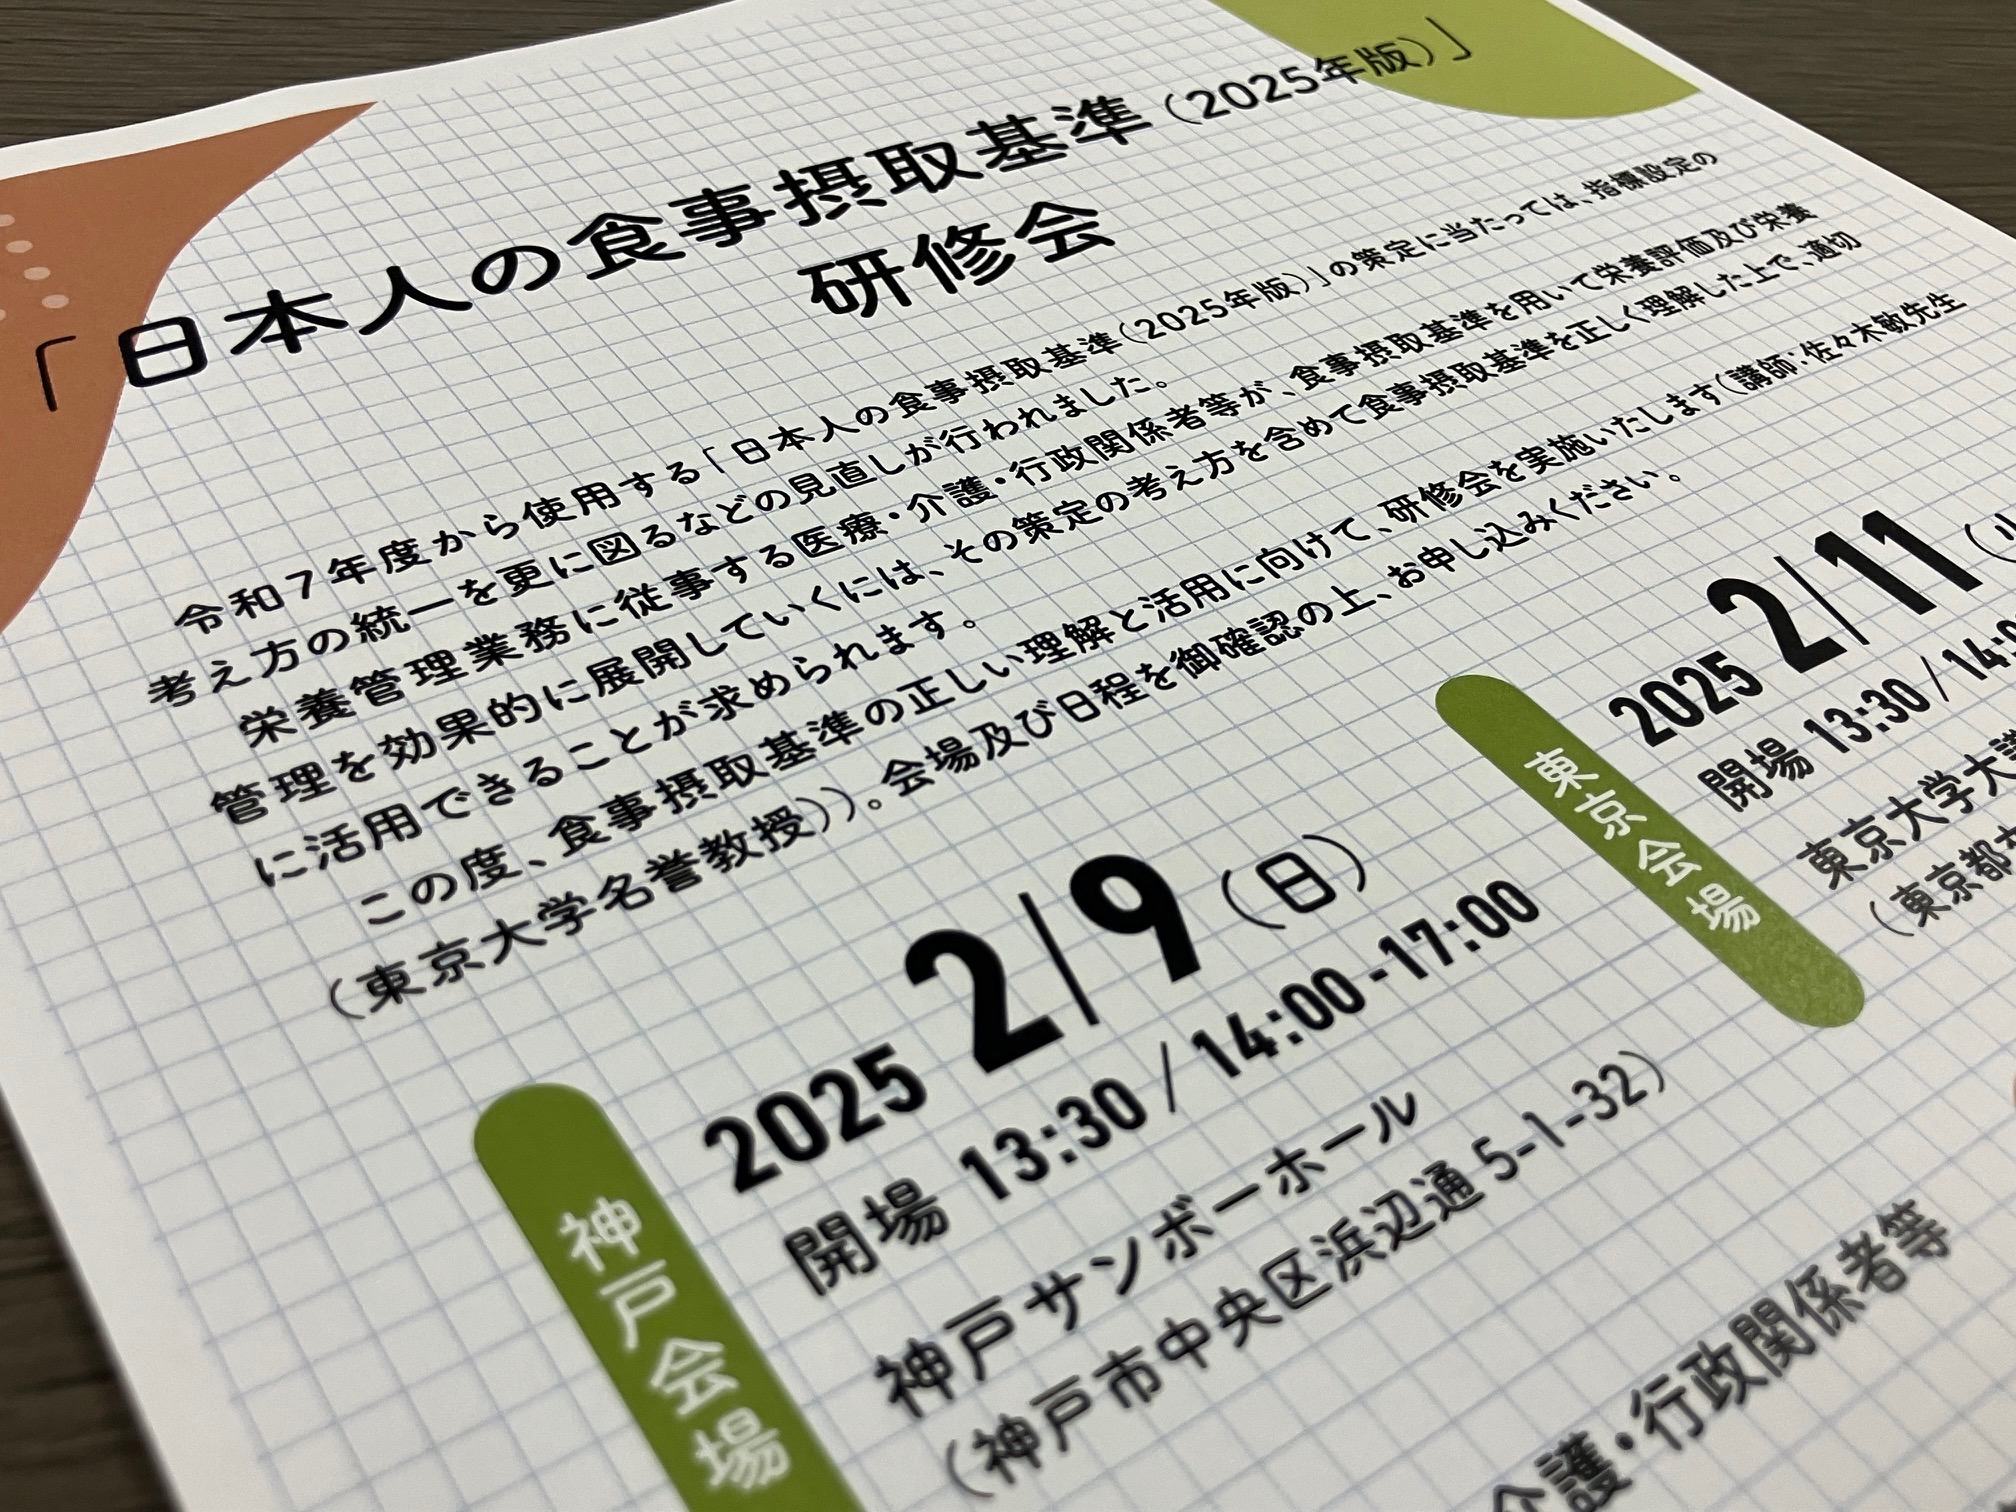 「日本人の食事摂取基準（2025年版）」
研修会
令和7年度から使用する「日本人の食事摂取基準（2025年版）」の策定に当たっては、指標設定の
考え方の統一を更に図るなどの見直しが行われました。
栄養管理業務に従事する医療・介護・行政関係者等が、食事摂取基準を用いて栄養評価及び栄養
管理を効果的に展開していくには、その策定の考え方を含めて食事摂取基準を正しく理解した上で、適切
に活用できることが求められます。
この度、食事摂取基準の正しい理解と活用に向けて、研修会を実施いたします（講師：佐々木敏先生
（東京大学名誉教授））。会場及び日程を御確認の上、お申し込みください。
神戸会場
2025 2/9（日）
開場 13:30 / 14:00-17:00
神戸サンボーホール
（神戸市中央区浜辺通 5-1-32）
東京会場
2025 2/11（
開場 13:30 / 14:
東京大学大
（東京都
介護・行政関係者等